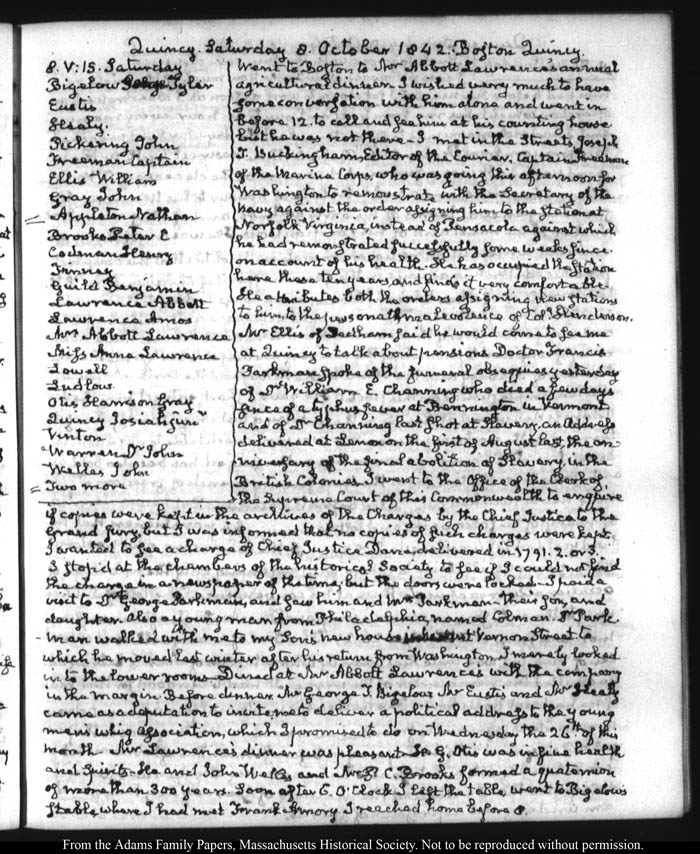 Quincy. Saturday 8. October 1842. Boston Quincy.
8. V:15. Saturday
Bigelow George Tyler
Eustis
Healy.
Pickering John
Freeman Captain
Ellis William
Gray John
Appleton Nathan
Brooks Peter C
Codman Henry
Guild Benjamin
Lawrence Abbott
Lawrence Amos
Mrs Abbott Lawrence
Miss Anna Lawrence
Lowell
Ludlow
Otis Harrison Gray
Quincy Josiah junr
Vinton
Warren Dr John
Welles John
Two more
Went to Boston to Mr Abbott Lawrence's annual
agricultural dinner. I wished very much to have
some conversation with him alone and went in
before 12. to call and see him at his counting house
but he was not there. I met in the Streets Joseph
T. Buckingham, Editor of the Courier. Captain Freeman
of the Marine Corps, who was going this afternoon for
Washington to remonstrate with the Secretary of the
Navy against the order assigning him to the station at
Norfolk Virginia, instead of Pensacola against which
he had remonstrated successfully some weeks since.
on account of his health. He has occupied the station
here these ten years, and finds it very comfortable.
He attributes both the orders assigning new stations
to him, to the personal malevolence of Col. Henderson.
Mr Ellis of Dedham said he would come to see me
at Quincy to talk about pensions Doctor Francis
Parkman spoke of the funeral obsequies yesterday
of Dr William E. Channing who died a few days
since of a typhus fever at Bennington in Vermont
and of Dr Channing last shot at Slavery, an Address
delivered at Lenox on the first of August last, the an-
niversary of the final abolition of Slavery, in the
British Colonies. I went to the Office of the Clerk of
the Supreme Court of this Commonwealth to enquire
if copies were kept in the archives of the Charges by the Chief Justice to the
Grand Jury, but I was informed that no copies of such charges were kept.
I wanted to see a charge of Chief Justice Dana, delivered in 1791. 2. or 3.
I stop'd at the chambers of the historical Society to see if I could not find
the charge in a newspaper of the time, but the doors were locked. I paid a
visit to Dr George Parkman, and saw him and Mrs Parkman. Their son, and
daughter. Also a young man from Philadelphia, named Colman. Dr Park-
man walked with me to my Son's new house Mount Vernon Street to
which he moved last winter after his return from Washington. I merely looked
in to the lower rooms. Dined at Mr Abbott Lawrence's with the company
in the margin. Before dinner Mr George T. Bigelow Mr Eustis and Mr Healy
came as a deputation to invite me to deliver a political address to the young
men's whig association, which I promised to do on Wednesday the 26th of this
month. Mr Lawrence's dinner was pleasant. H. G. Otis was in fine health
and spirits. He and John Welles and Mr P. C. Brooks formed a quaternion
of more than 300 years. Soon after 6. O'Clock I left the table went to Bigelow's
stable, where I had met Frank Amory I reached home before 8.
From the Adams Family Papers, Massachusetts Historical Society. Not to be reproduced without permission.